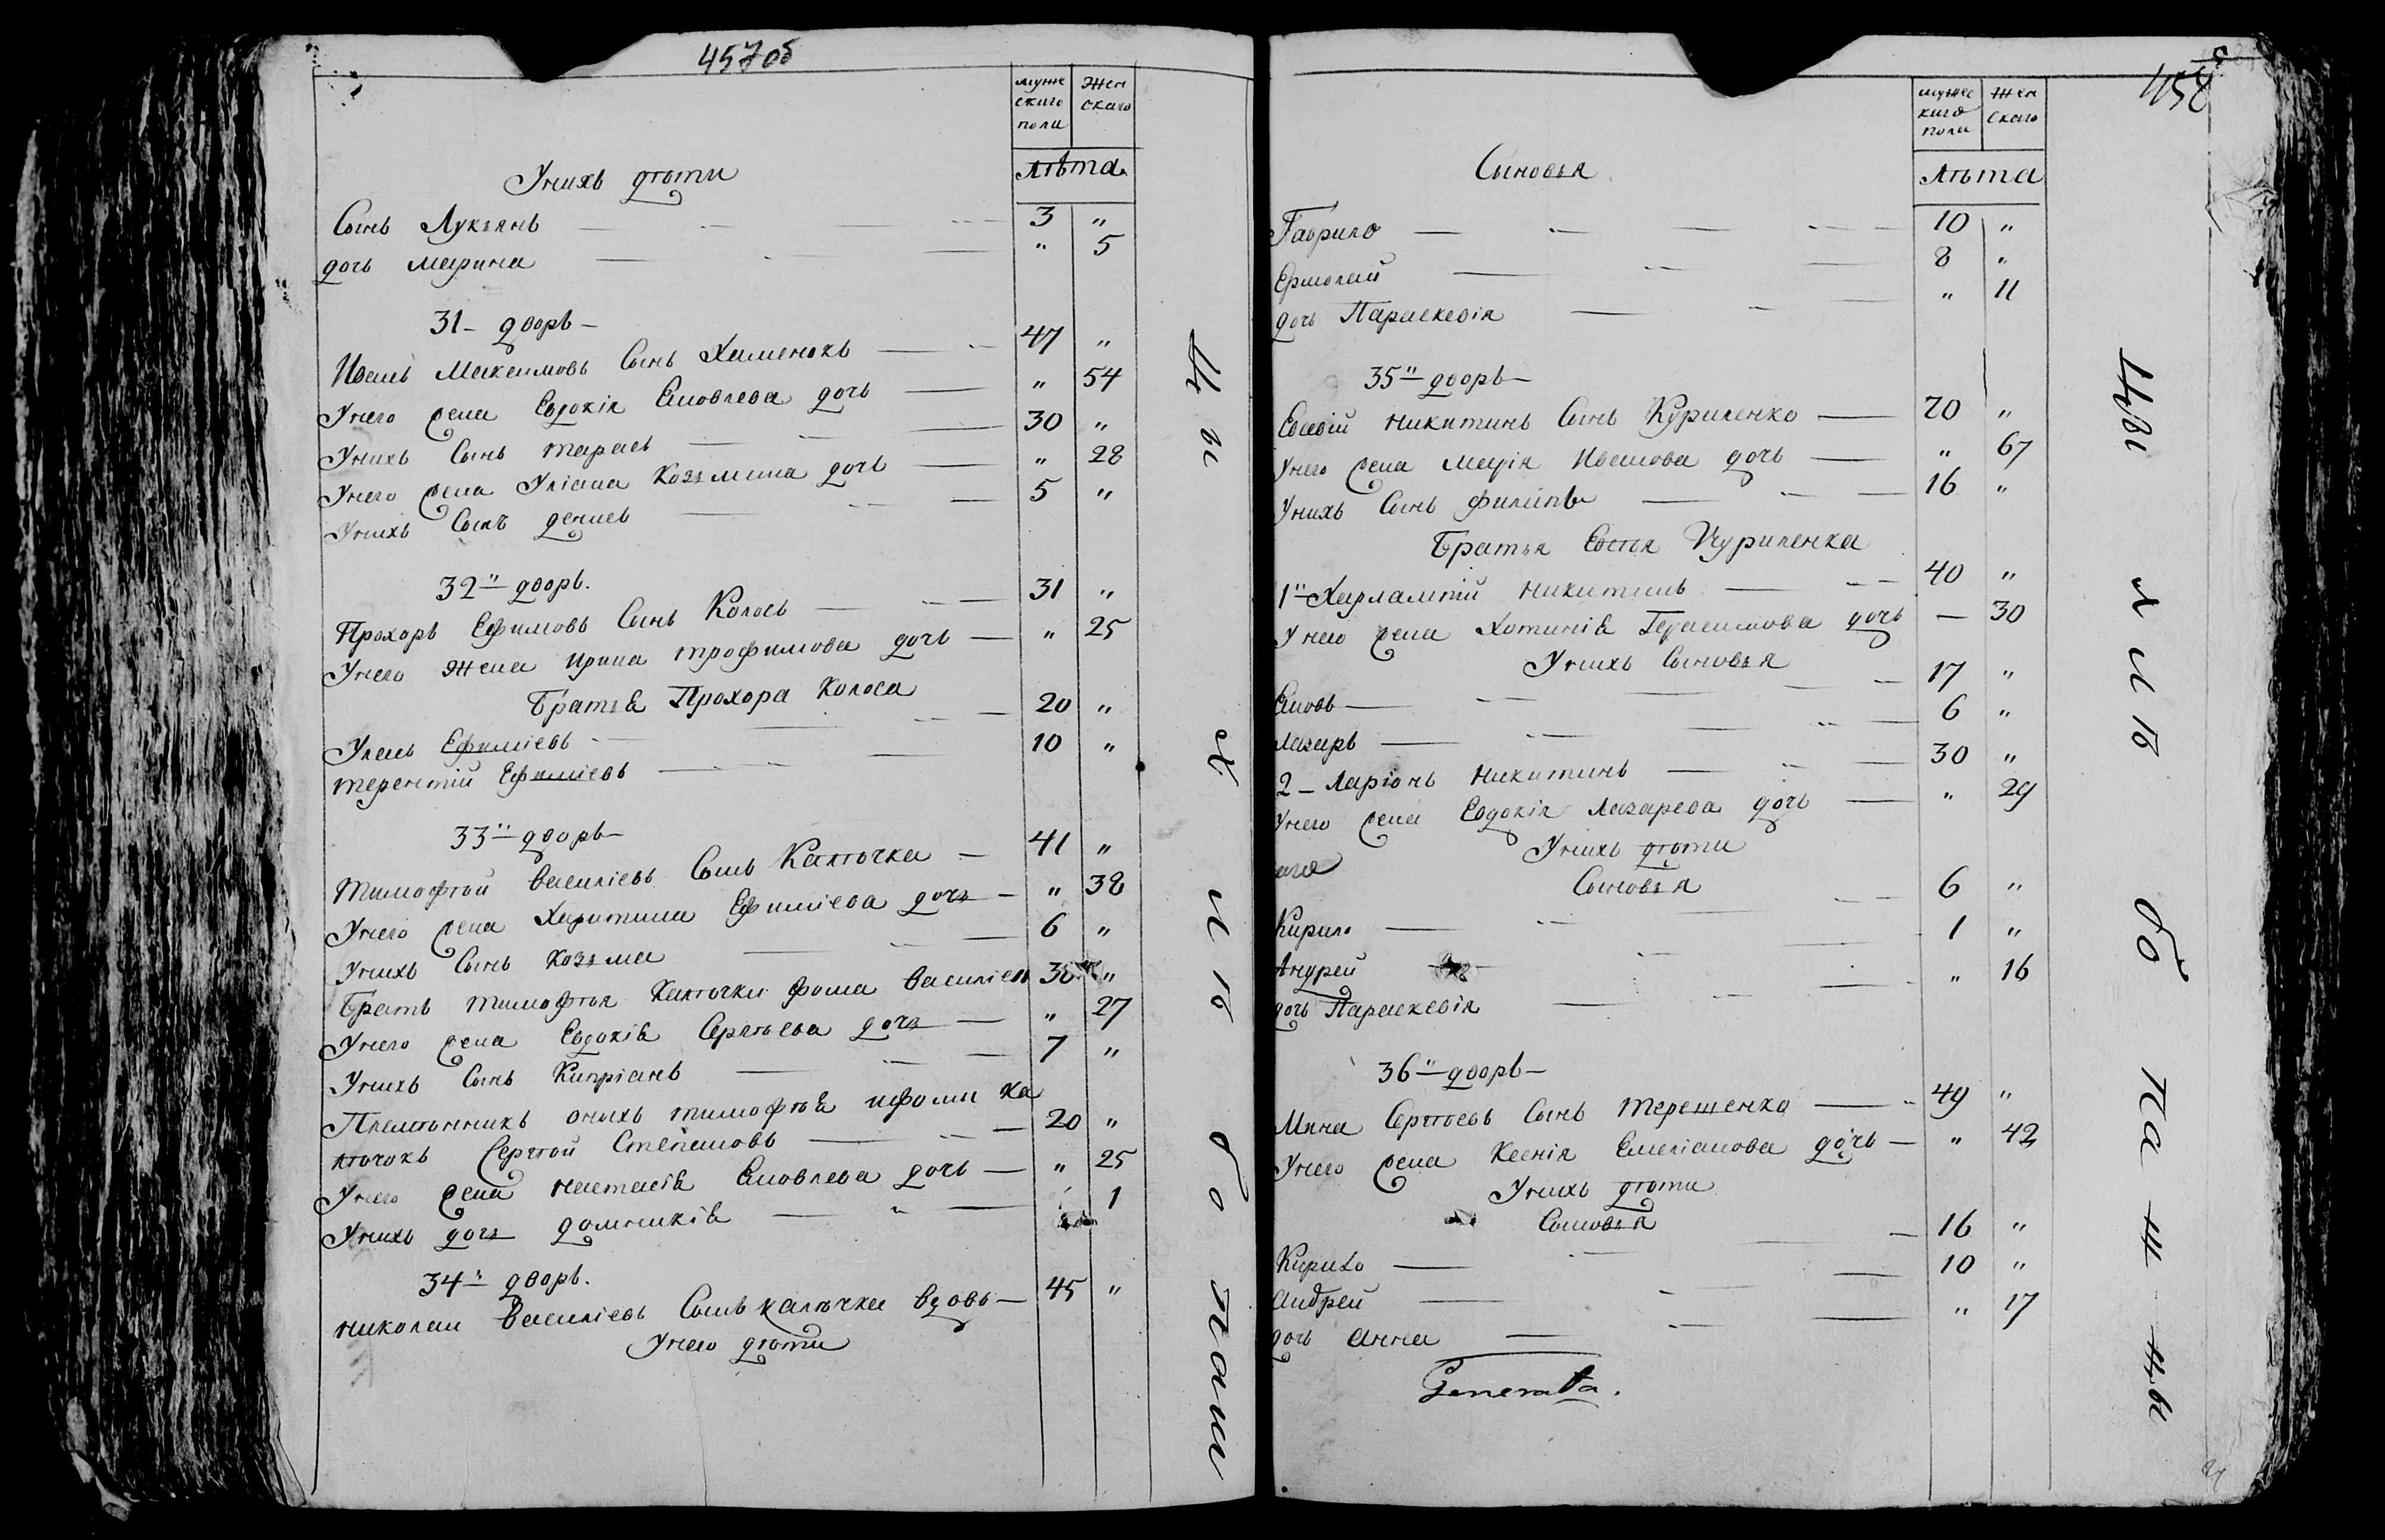 457об
муже
скаго
пола
жен
скаго
лѣта
У нихъ дѣти
Сынъ Лукъянъ 3 "
дочь марина " 5
31- дворъ-
Иванъ Максимовъ Сынъ Хаменокъ 47 "
У него жена Евдокія Яковлева дочь " 54
У нихъ Сынъ тарасъ 30 "
У него жена Уліана Козъмина дочь " 28
У нихъ Сынъ денисъ 5 "
32"- дворъ.
Прохоръ Ефимовъ Сынъ Колосъ 31 "
У него жена ирина трофимова дочь " 25
Братья Прохора Колоса
Уленъ Ефиміевъ 20 "
терентій Ефиміевъ 10 "
33"- дворъ-
тимофѣй Василіевъ Сынъ Калючка 41 "
У него жена Харитина Ефиміева дочь " 38
У нихъ Сынъ Козъма 6 "
Братъ тимофѣя Калючки фома Василіевъ "
У него жена Евдокія Сергѣева дочь " 27
У нихъ Сынъ Кипріанъ 7 "
Племѣнникъ онихъ тимофѣя ифоми ка
лючокъ Сергѣй Степановъ 20 "
У него жена настасія Яковлева дочь " 25
У нихъ дочь домникія 1
34"- дворъ.
николай Василіевъ Сынъ калючка вдовъ 45 "
У него дѣти
458
муже
скаго
пола
жен
скаго
лѣта
Сыновья
Гаврило 10 "
Ермолай 8 "
дочь Параскевія " 11
35"- дворъ-
Евсевій никитинъ Сынъ Куриленко 70 "
У него жена марія Иванова дочь " 67
У нихъ Сынъ филипъ 16 "
Братья Евсѣя Куриленка
1"- Харлампій никитинъ 40 "
У него жена Хотинія Герасимова дочь — 30
У нихъ Сыновья
Яковъ 17 "
лазаръ 6 "
2- ларіонъ никитинъ 30 "
У него жена Евдокія лазарева дочь " 29
У нихъ дѣти
Сыновья
Кирило 6 "
Андрей 1 "
дочь Параскевія " 16
36"- дворъ-
Мина Сергѣевъ Сынъ терещенко 49 "
У него жена Ксенія Емеліанова дочь " 42
У нихъ дѣти
Сыновья
Кирило 16 "
андрей 10 "
дочь анна " 17